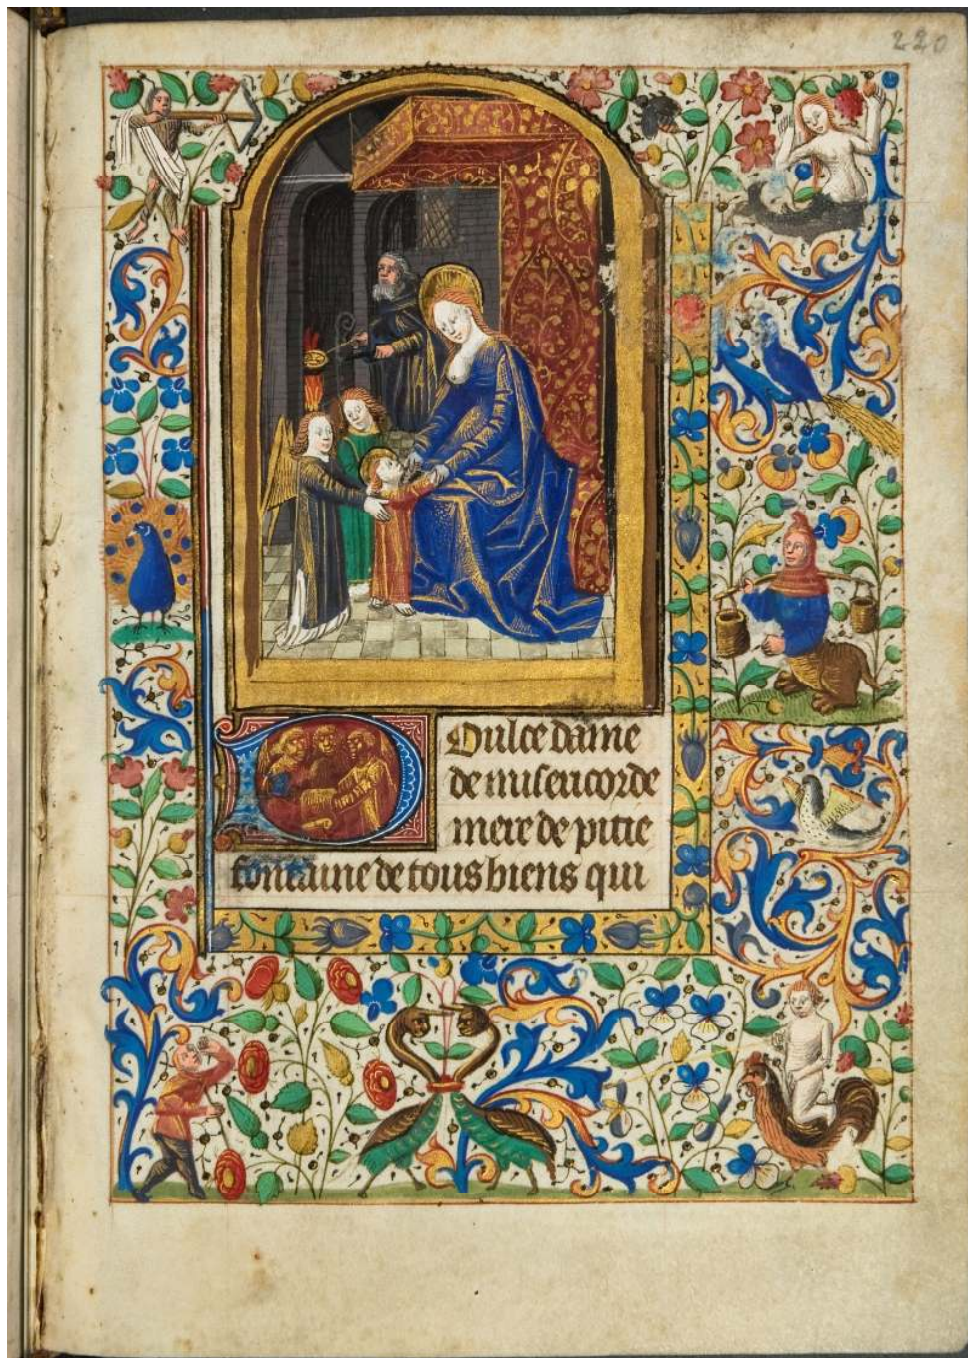 220
Dulce dame
de misericorde
mere de pitie
fontaine de tous biens qui